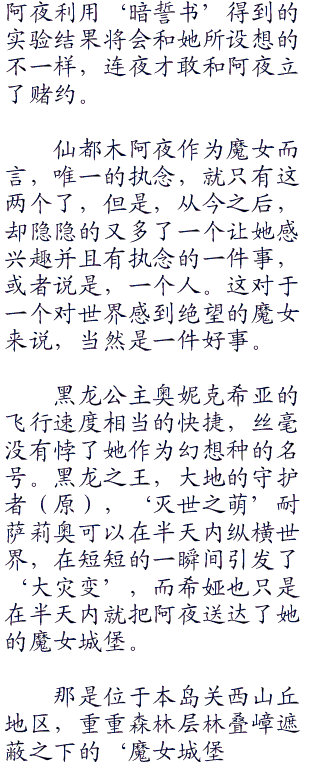 阿夜利用‘暗誓书’得到的
实验结果将会和她所设想的
不一样，连夜才敢和阿夜立
了赌约。
仙都木阿夜作为魔女而
言，唯一的执念，就只有这
两个了，但是，从今之后，
却隐隐的又多了一个让她感
兴趣并且有执念的一件事，
或者说是，一个人。这对于
一个对世界感到绝望的魔女
来说，当然是一件好事。
黑龙公主奥妮克希亚的
飞行速度相当的快捷，丝毫
没有悖了她作为幻想种的名
号。黑龙之王，大地的守护
者（原），‘灭世之萌’耐
萨莉奥可以在半天内纵横世
界，在短短的一瞬间引发了
‘大灾变’，而希娅也只是
在半天内就把阿夜送达了她
的魔女城堡。
那是位于本岛关西山丘
地区，重重森林层林叠嶂遮
蔽之下的‘魔女城堡